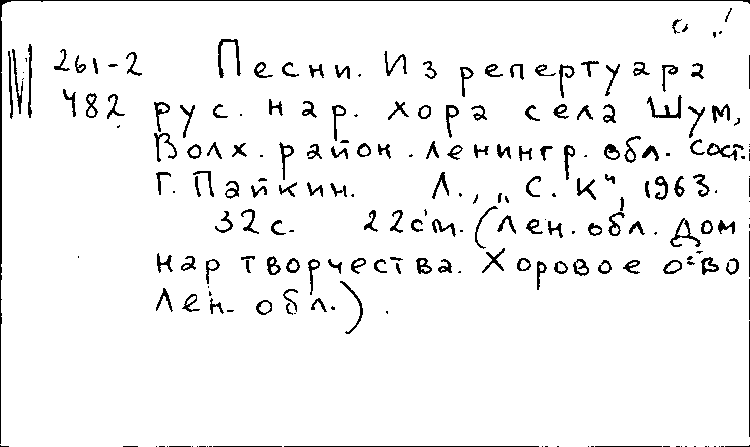 М 261-2 Песни. Из репертуара
482 рус. нар. хора села Шум,
Волх. район. Ленингр. обл. Сост.
Г. Пайкин. Л., „С. К“, 1963.
32 с. 22 см. (Лен. обл. Дом
нар творчества. Хоровое о-во
Лен. обл.).